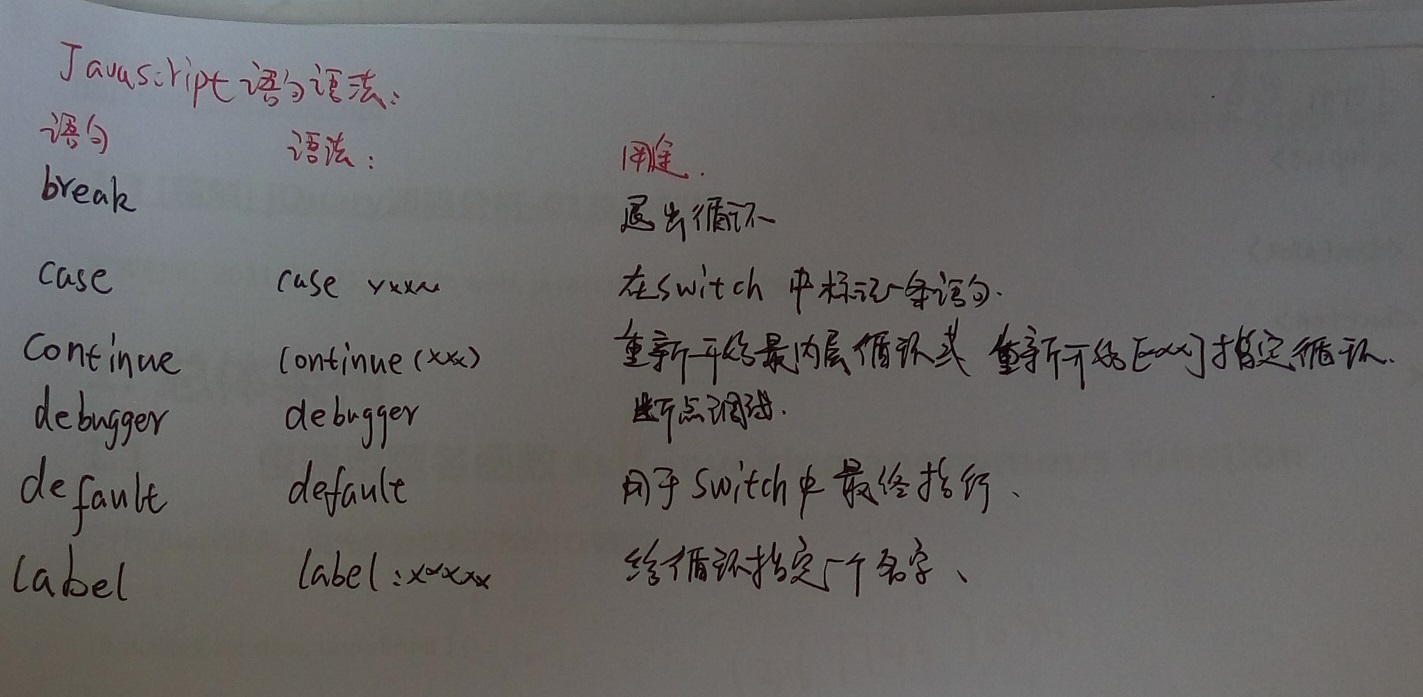 Javascript语句语法:
语句 语法: 用途.
break 退出循环
case case xxxx 在switch 中标记一条语句.
continue continue (xxx) 重新开始最内层循环或 重新开始[xxx]指定循环.
debugger debugger 断点调试.
default default 用于switch中最终执行、
label label:xxxxx 给循环指定一个名字、